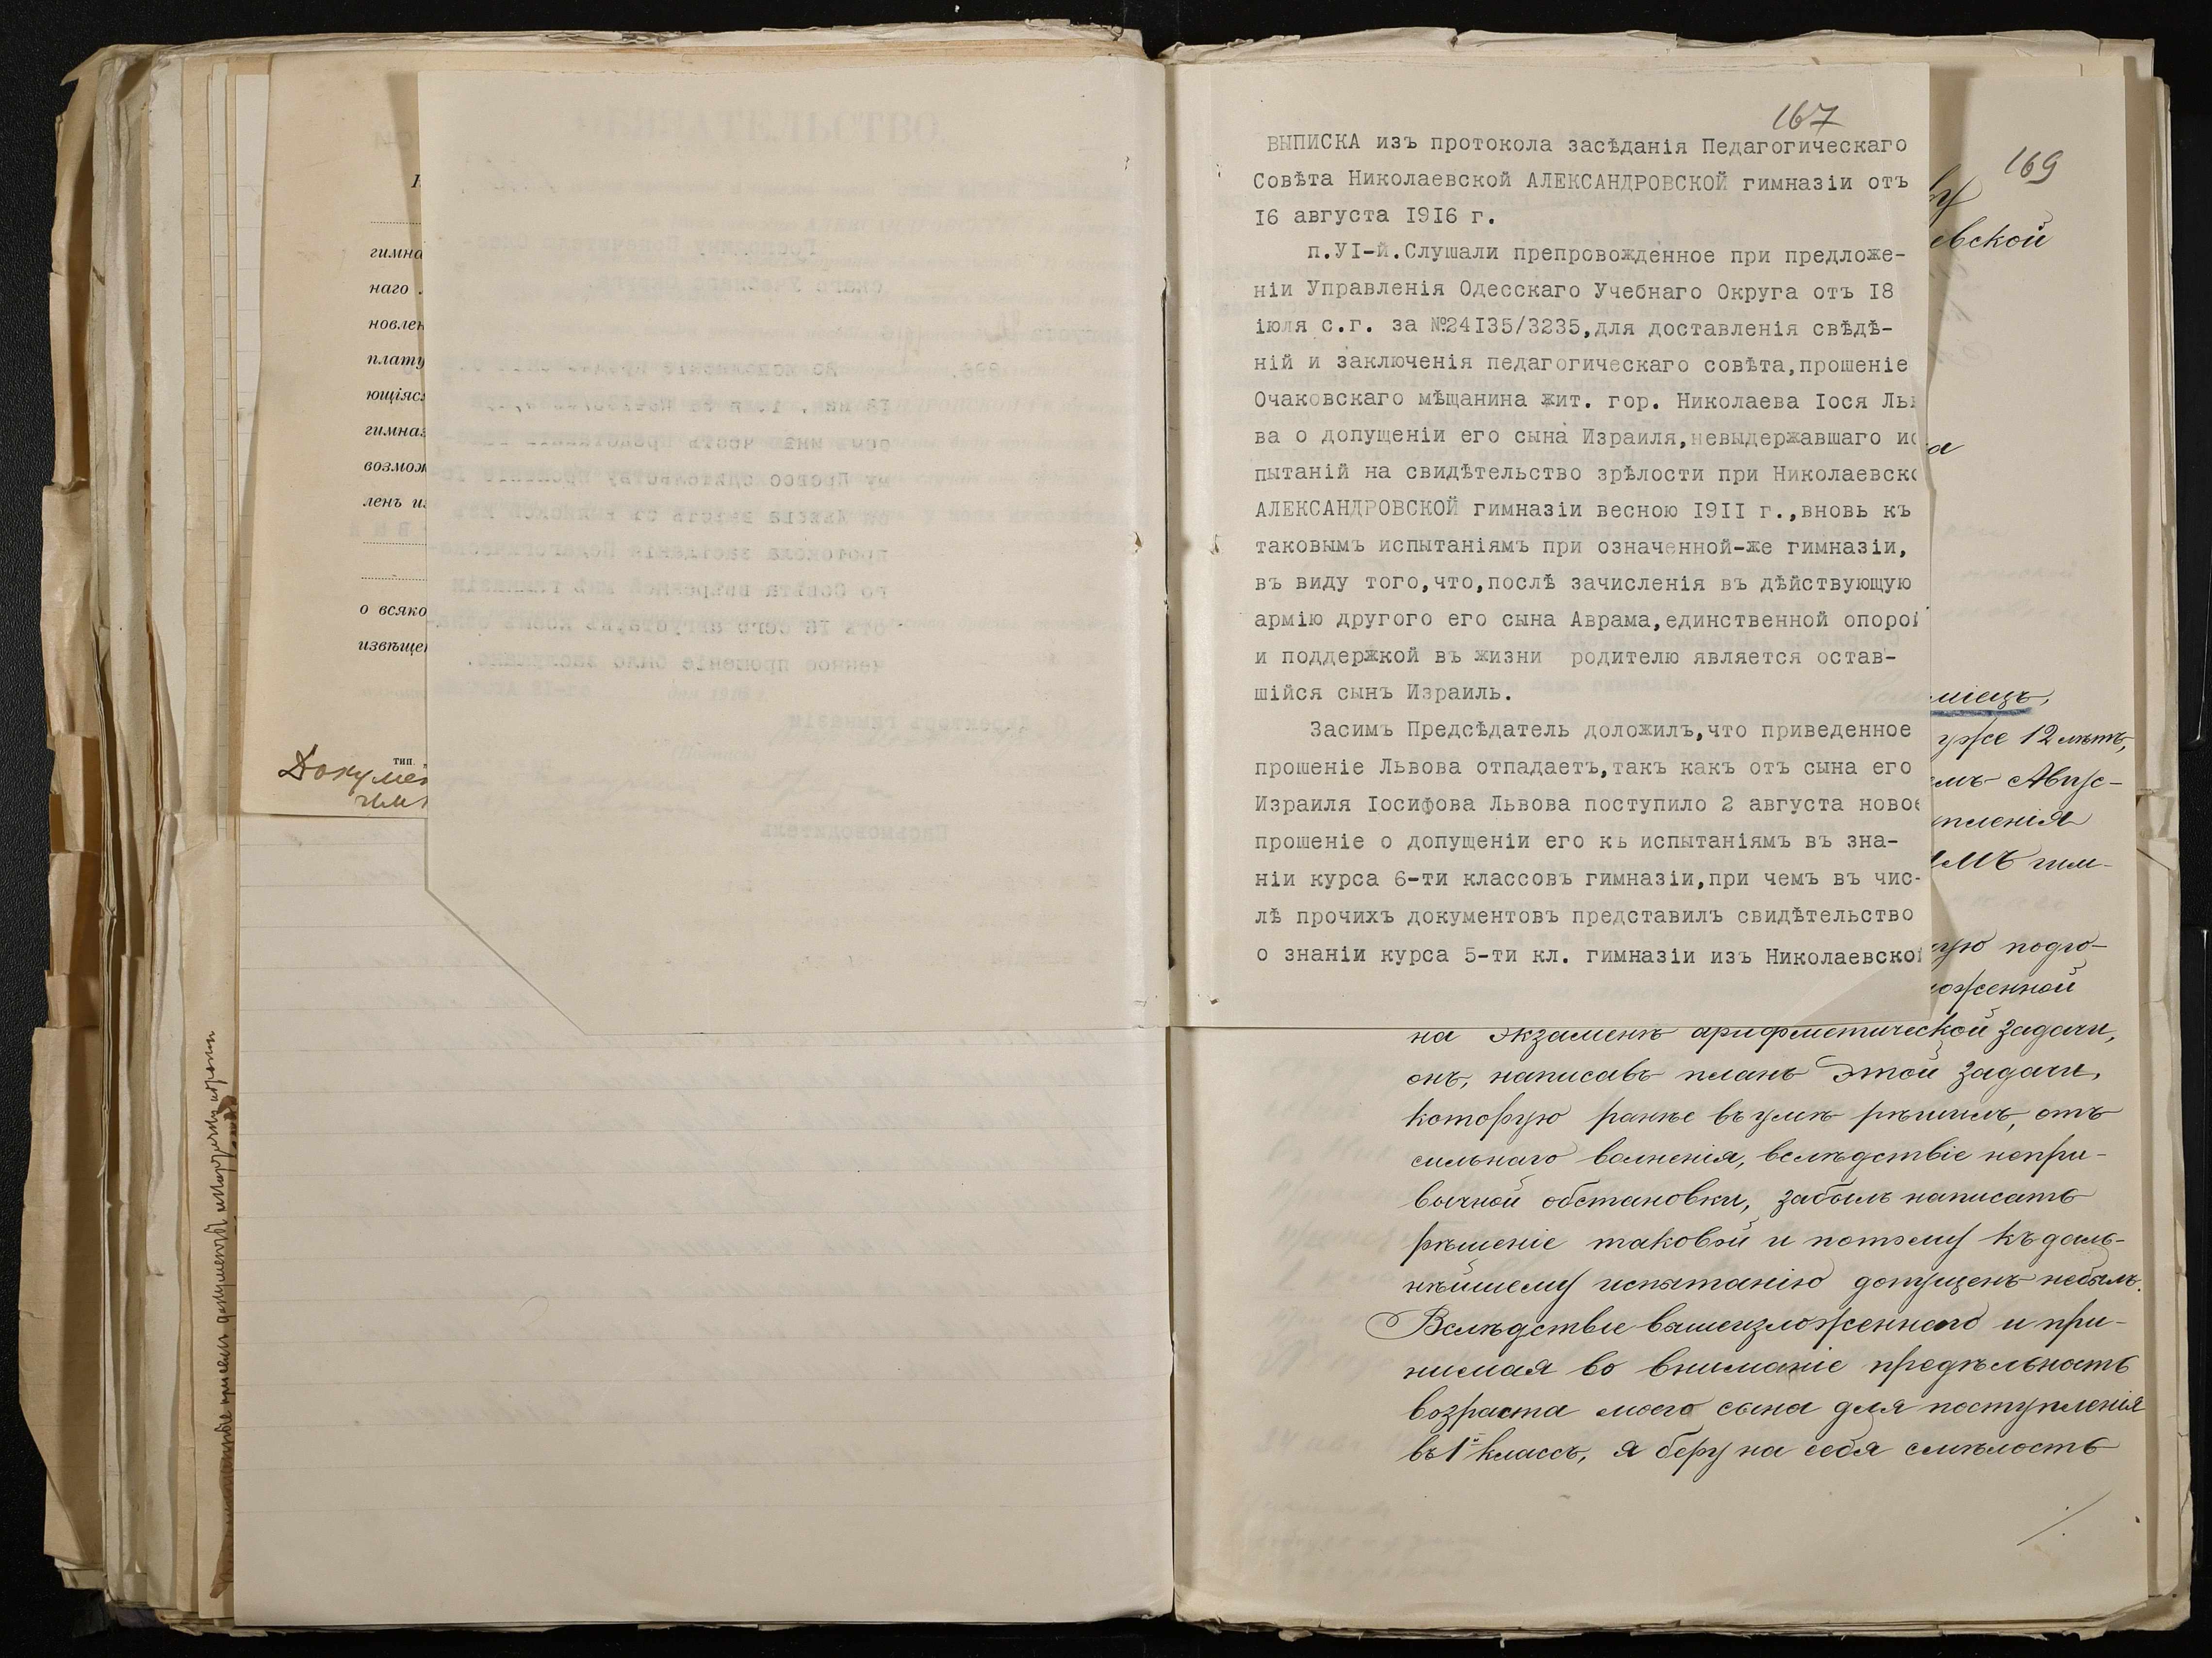 гимна
наго
новлен
плату
ющіяся
гимназ
возмож
ленъ из
о всяко
извѣще
тип.
Докумен
гим
167
ВЫПИСКА изъ протокола засѣданія Педагогическаго
Совѣта Николаевской АЛЕКСАНДРОВСКОЙ гимназіи отъ
I6 августа I9I6 г.
п.УI-й.Слушали препровожденное при предложе-
ніи Управленія Одесскаго Учебнаго Округа отъ I8
іюля с.г. за №24I35/3235,для доставленія свѣдѣ-
ній и заключенія педагогическаго совѣта,прошеніе
Очаковскаго мѣщанина жит. гор. Николаева Іося Льв
ва о допущеніи его сына Израиля,невыдержавшаго ис
пытаній на свидѣтельство зрѣлости при Николаевско
АЛЕКСАНДРОВСКОЙ гимназіи весною I9II г.,вновь къ
таковымъ испытаніямъ при означенной-же гимназіи,
въ виду того,что,послѣ зачисленія въ дѣйствующую
армію другого его сына Аврама,единственной опорой
и поддержкой въ жизни родителю является остав-
шійся сынъ Израиль.
Засимъ Предсѣдатель доложилъ,что приведенное
прошеніе Львова отпадаетъ,такъ какъ отъ сына его
Израиля Іосифова Львова поступило 2 августа новое
прошеніе о допущеніи его къ испытаніямъ въ зна-
ніи курса 6-ти классовъ гимназіи,при чемъ въ чис-
лѣ прочихъ документовъ представилъ свидѣтельство
о знаніи курса 5-ти кл. гимназіи изъ Николаевской
169
евской
міецъ,
уже 12 лѣтъ,
мъ Авгус-
пленія
мъ гим-
ую подго-
оженной
на экзаменѣ арифметической задачи,
онъ, написавъ планъ этой задачи,
которую ранѣе въ умѣ рѣшилъ, отъ
сильнаго волненія, вслѣдствіе непри-
вычной обстановки, забылъ написать
рѣшеніе таковой и потому къ даль-
нѣйшему испытанію допущенъ не былъ.
Вслѣдствіе вышеизложеннаго и при-
нимая во вниманіе предѣльность
возраста моего сына для поступленія
въ 1й классъ, я беру на себя смѣлость